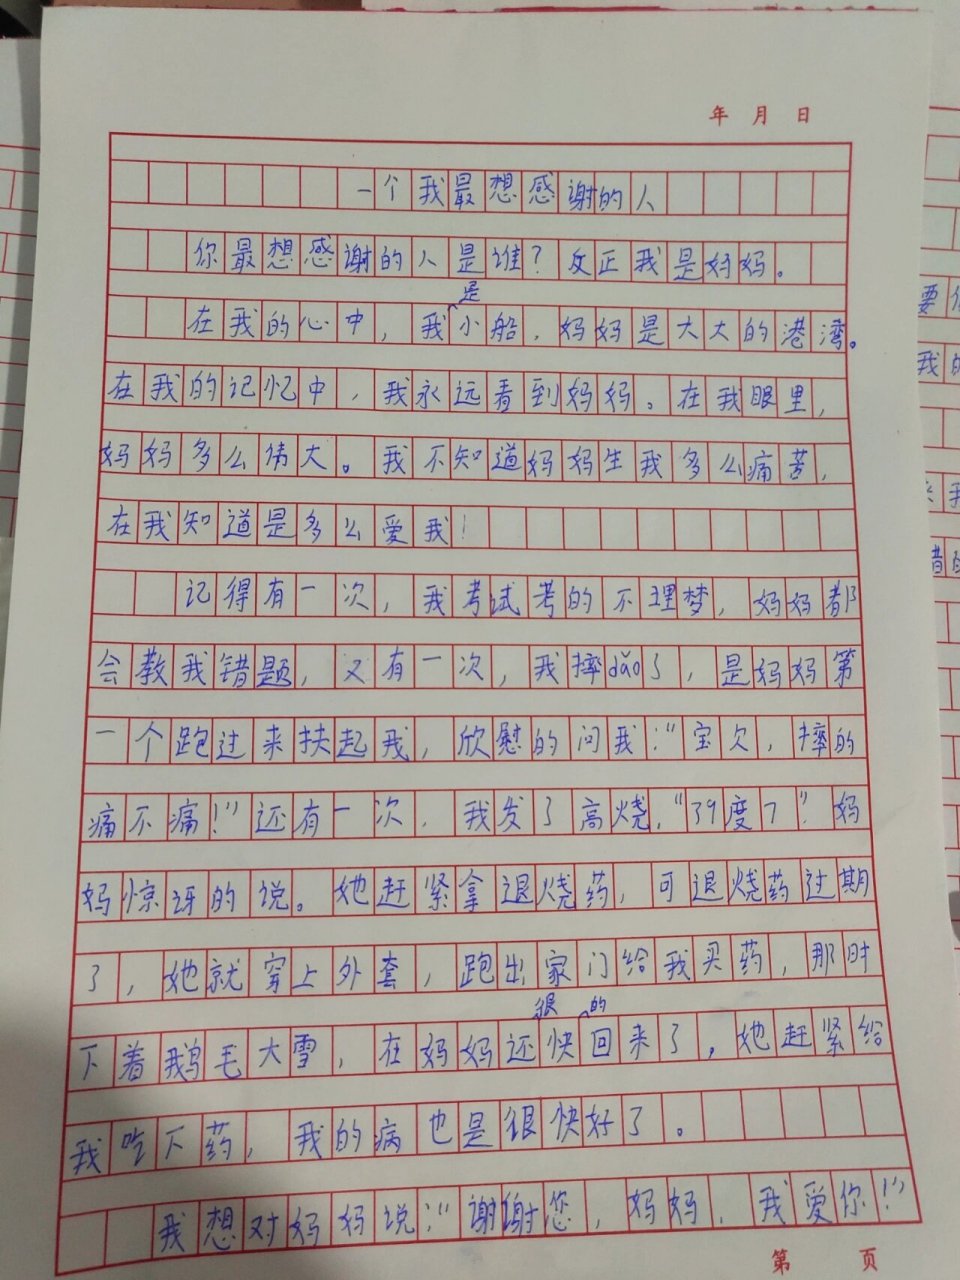 年 月 日
一个我最想感谢的人
你最想感谢的人是谁?反正我是妈妈。
在我的心中,我是小船,妈妈是大大的港湾。
在我的记忆中,我永远看到妈妈。在我眼里,
妈妈多么伟大。我不知道妈妈生我多么痛苦,
在我知道是多么爱我!
记得有一次,我考试考的不理梦,妈妈都
会教我错题,又有一次,我摔dǎo了,是妈妈第
一个跑过来扶起我,欣慰的问我:“宝欠,摔的
痛不痛!”还有一次,我发了高烧,“39度7?”妈
妈惊讶的说。她赶紧拿退烧药,可退烧药过期
了,她就穿上外套,跑出家门给我买药,那时
下着鹅毛大雪,在妈妈还很快的回来了,她赶紧给
我吃下药,我的病也是很快好了。
我想对妈妈说:“谢谢您,妈妈,我爱你!”
第 页